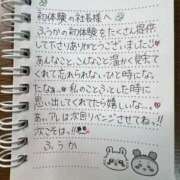 初体験の社長様へ
ふうかの初体験をたくさん提供
して下さりありがとうございました!!
あんなこと、こんなこと温かく見てく
れて忘れられないひと時になっ
たなぁ。私のことふとした時に
思い出してくれてたら嬉しいな…。
あっ、アレは次回リベンジさせてね!、
次こそは。!!
ふうか